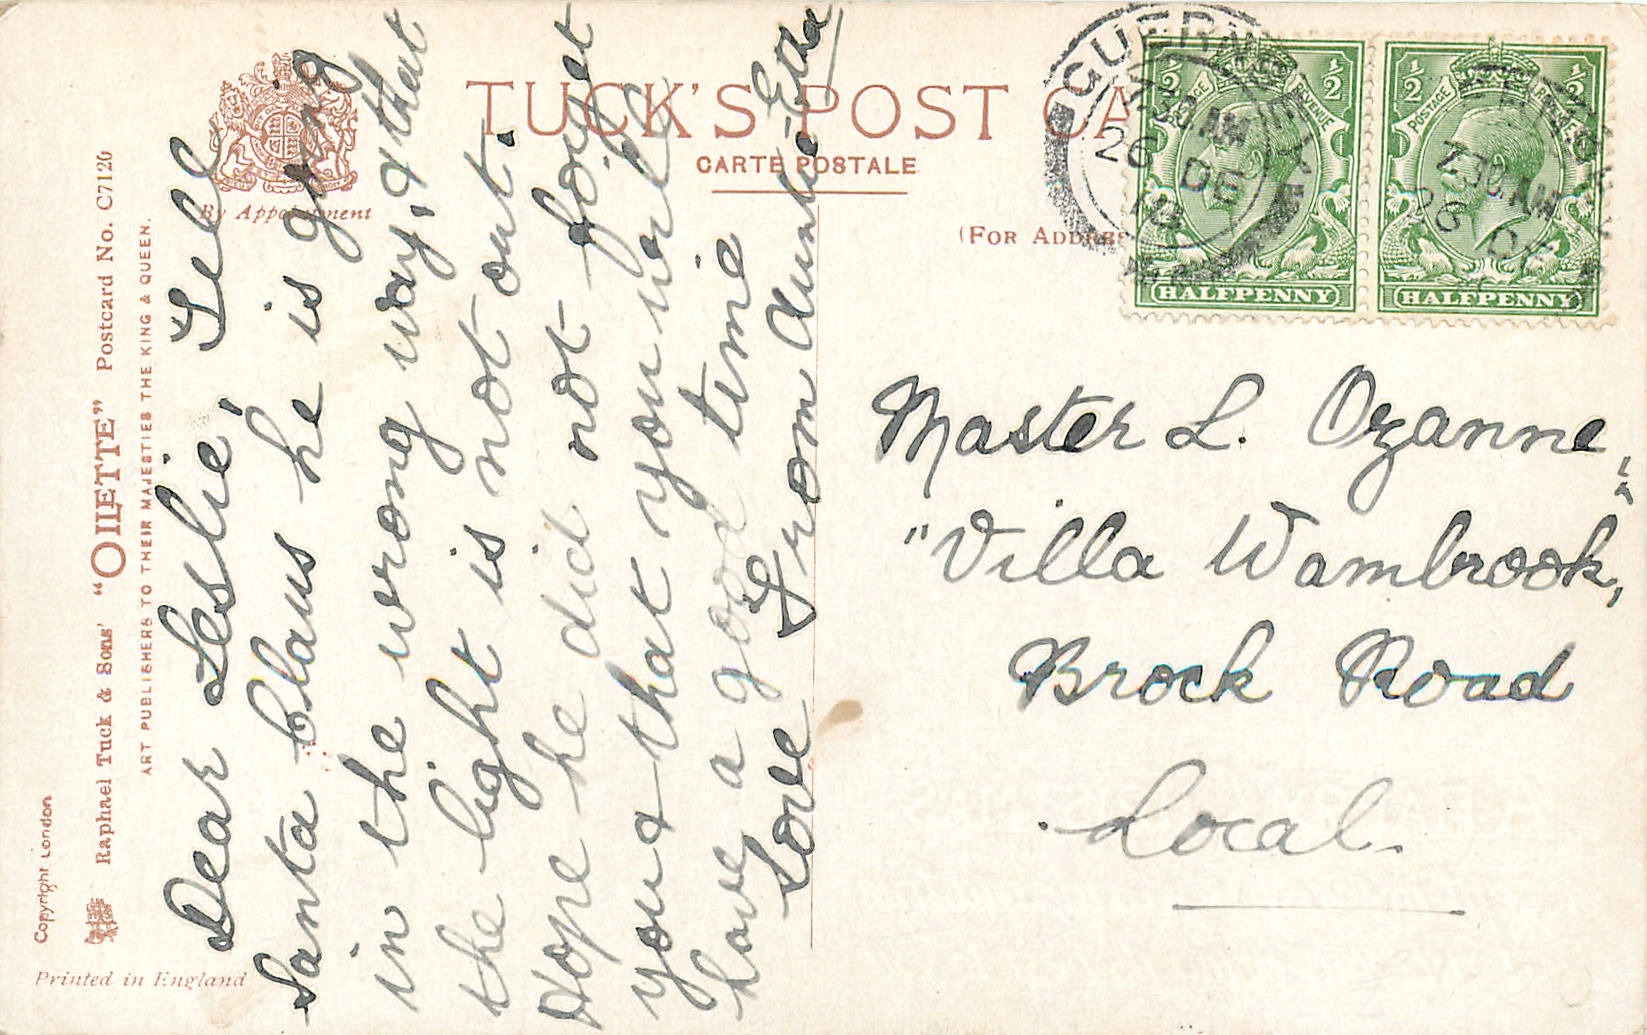 Copyright London
Raphael Tuck & Sons' "OILETTE" Postcard No. C7120
ART PUBLISHERS TO THEIR MAJESTIES THE KING & QUEEN.
Printed in England
By Appointment
TUCK'S POST CA
CARTE POSTALE
(FOR ADDRES
Dear Leslie, Tell
Santa Claus he is going
in the wrong way, & that
the light is not out.
Hope he did not forget
you & that you will
have a good time
Love From Auntie Etha
GUERNSEY
7.30 AM
26 DE
7.30 AM
26 DE
1/2 1/2
POSTAGE REVENUE
HALFPENNY
1/2 1/2
POSTAGE REVENUE
HALFPENNY
Master L. Ozanne,
"Villa Wambrook,"
Brock Road
Local.